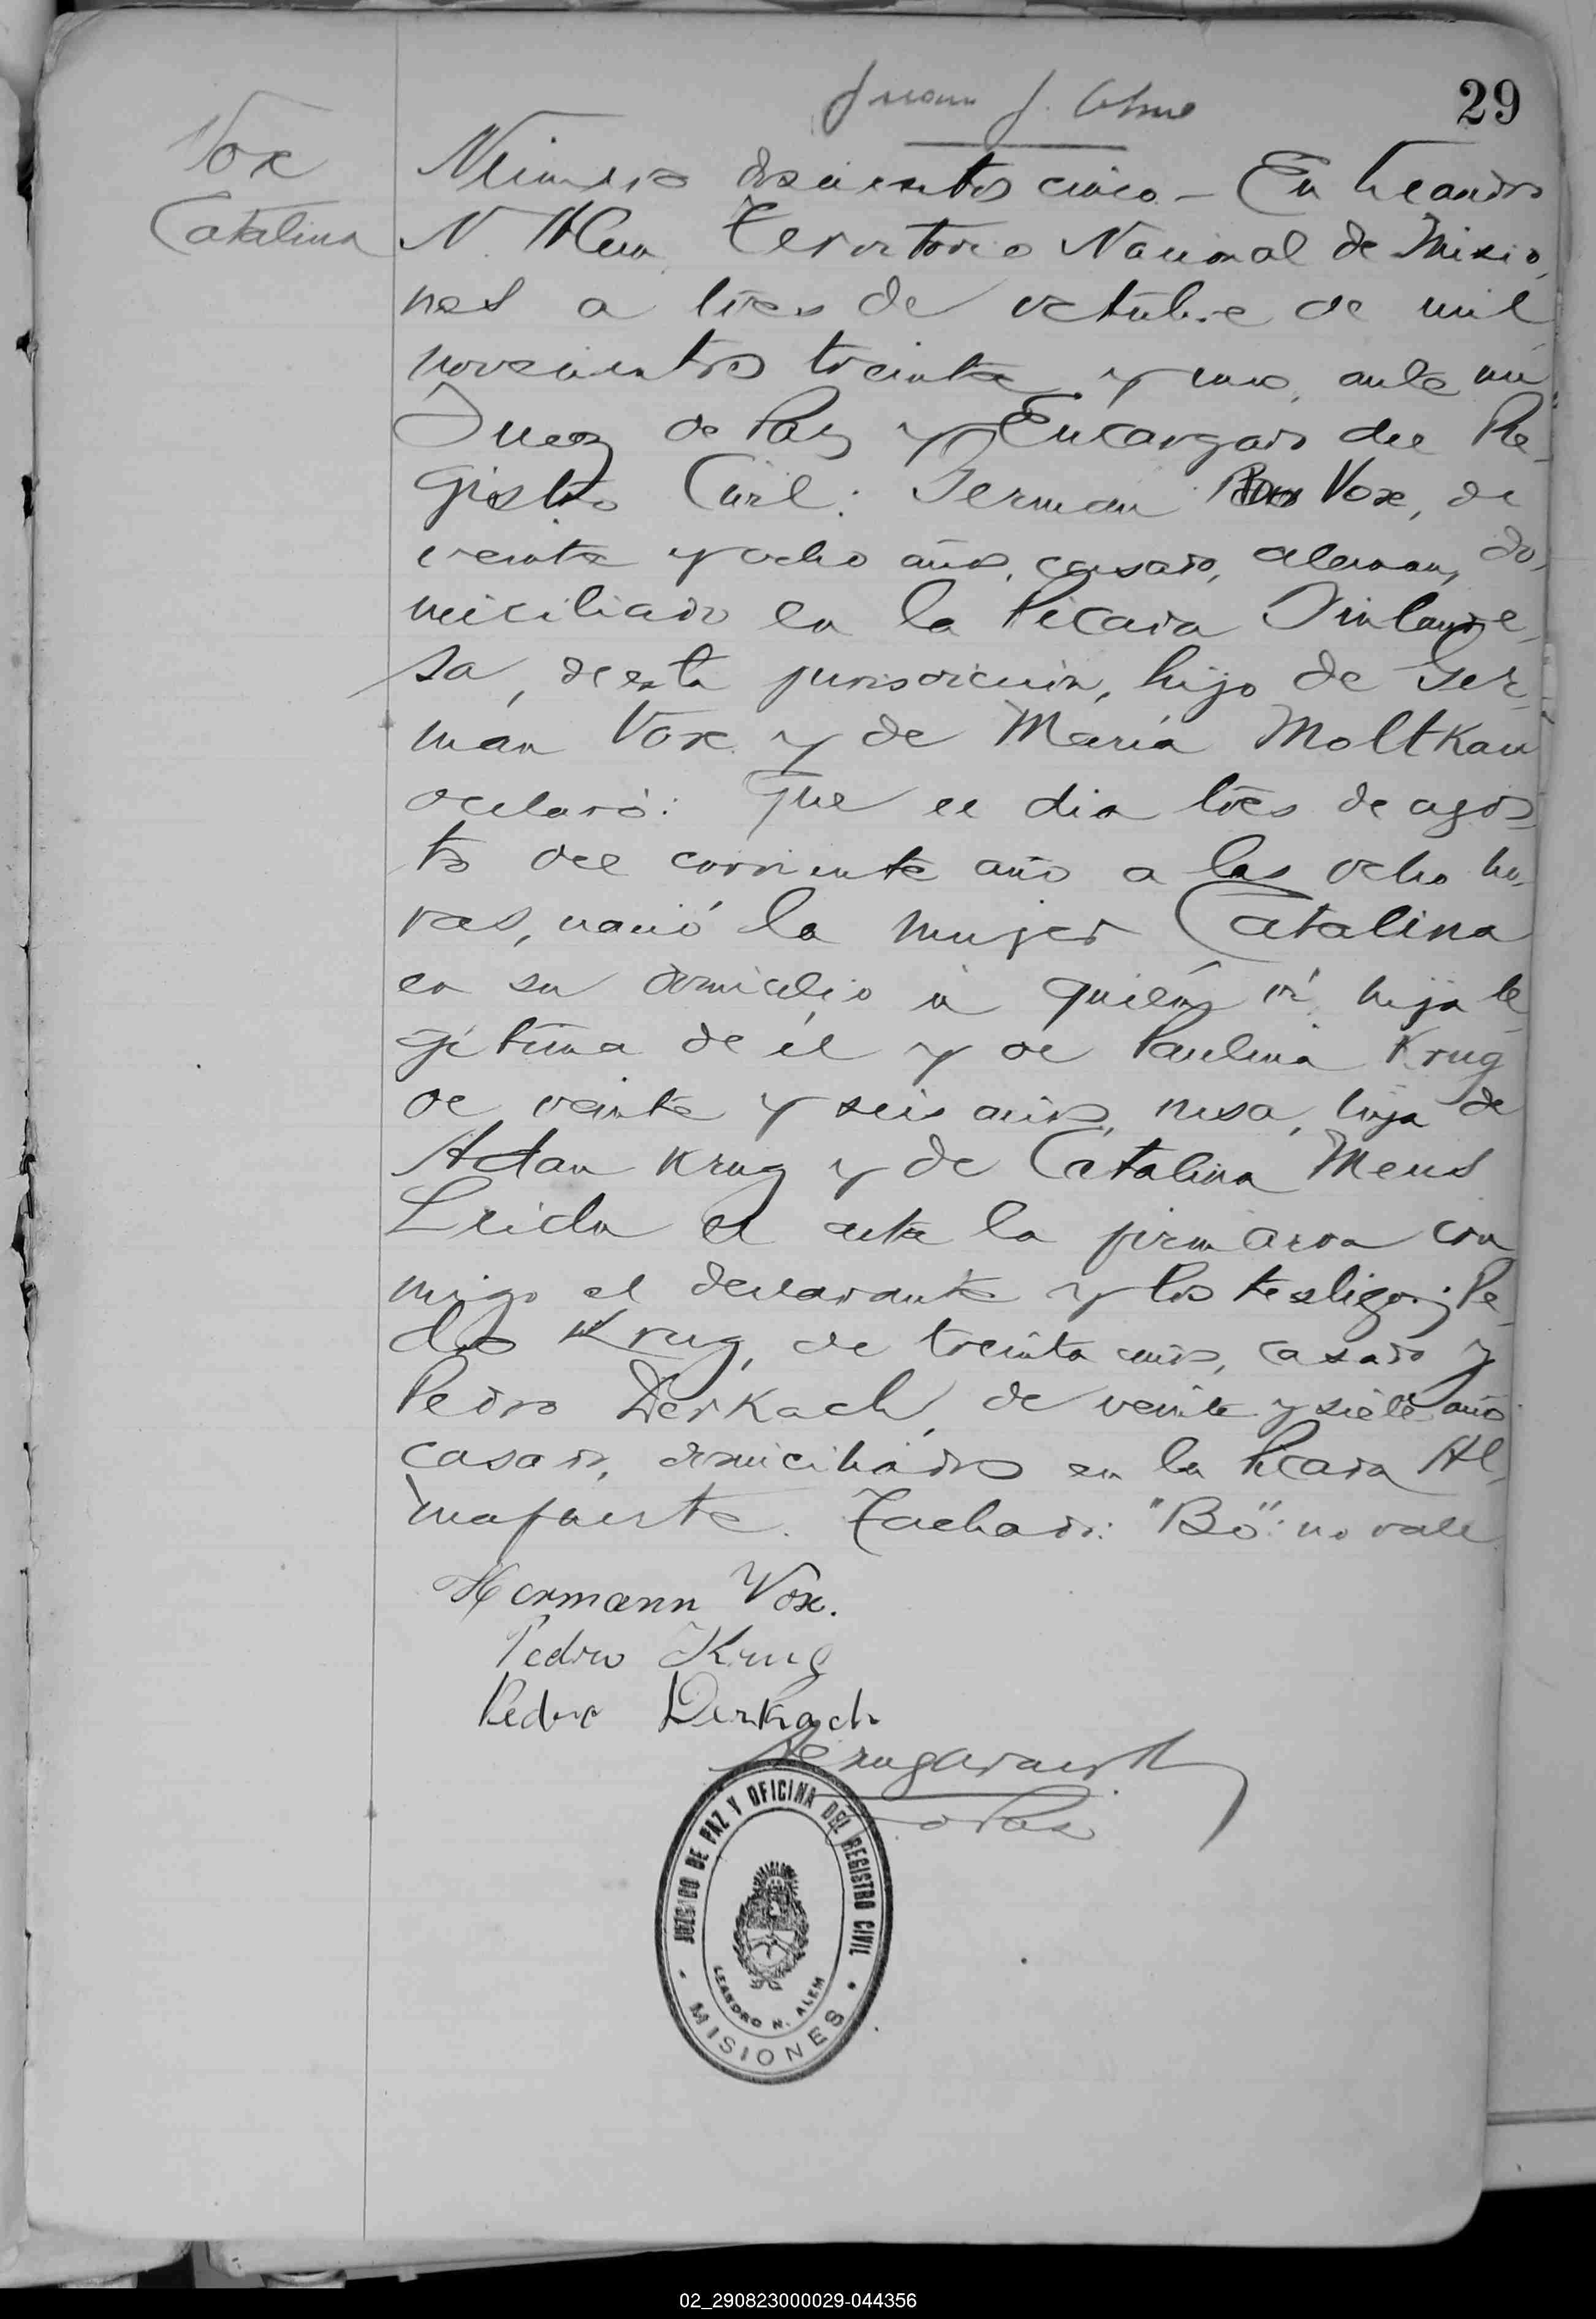 29
Vox
Catalina
Número doscientos cinco - En Leandro
N. Alem, Territorio Nacional de Misio,
nes a tres de octubre de mil
novecientos treinta y uno, ante mi
Juez de Paz y Encargado del Re-
gistro Civil: German Vox, de
veinte y ocho años, casado, aleman, do,
miciliado en la Picada Finlande,
sa, de esta jurisdiccion, hijo de Ger-
mán Vox y de María Moltkau
declaró: Que el dia tres de agos-
to del corriente año a las ocho ho,
ras, nació la mujer Catalina
en su domicilio a quién vi hija le,
gitima de él y de Paulina Krug
de veinte y seis años, rusa, hija de
Adan Krug y de Catalina Meus
Leida el acta la firmaron con
migo el declarante y los testigos: Pe,
dro Krug, de treinta años, casado y
Pedro Derkach, de veinte y siete años
casado, domiciliados en la Picada Al,
mafuerte. Tachado: "Bo": no vale
Hermann Vox.
Pedro Krug
Pedro Derkach
JUZGADO DE PAZ Y OFICINA DEL REGISTRO CIVIL
LEANDRO N. ALEM
MISIONES
02_290823000029-044356